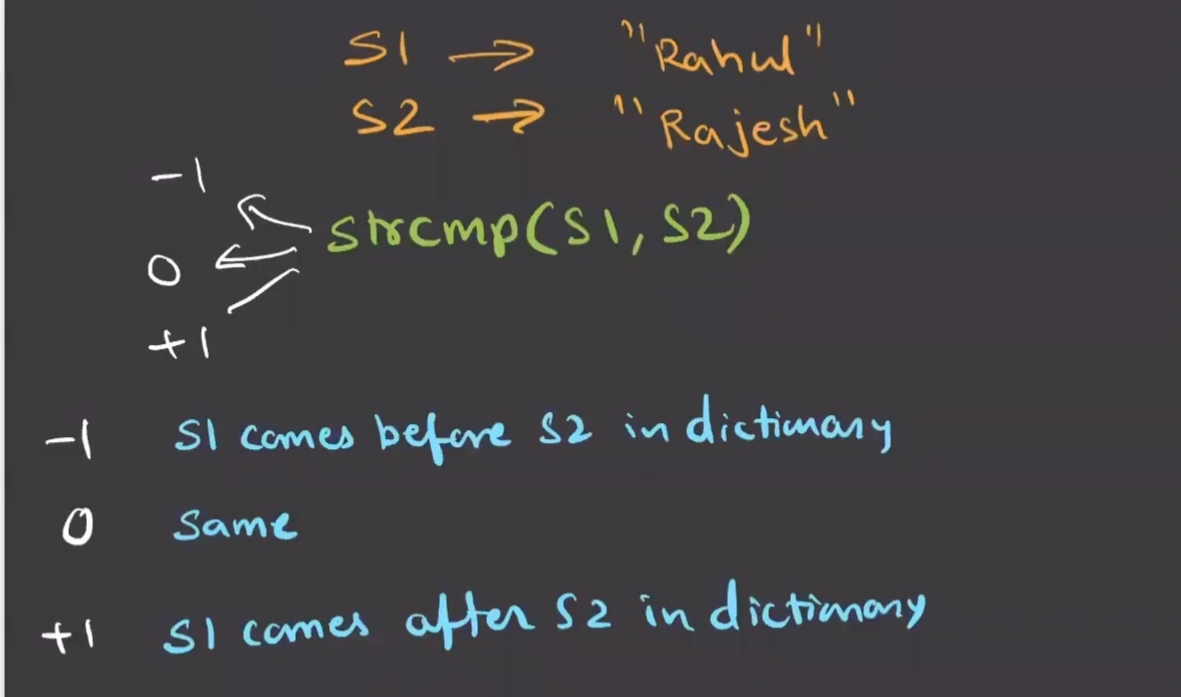 S1 → "Rahul"
S2 → "Rajesh"
-1
strcmp(S1, S2)
0
+1
-1 S1 comes before S2 in dictionary
0 Same
+1 S1 comes after S2 in dictionary